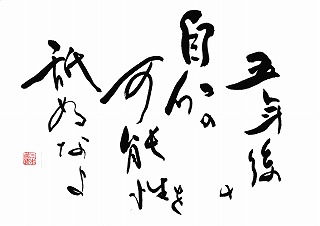 五年後の
自分の
可能性を
舐めるなよ